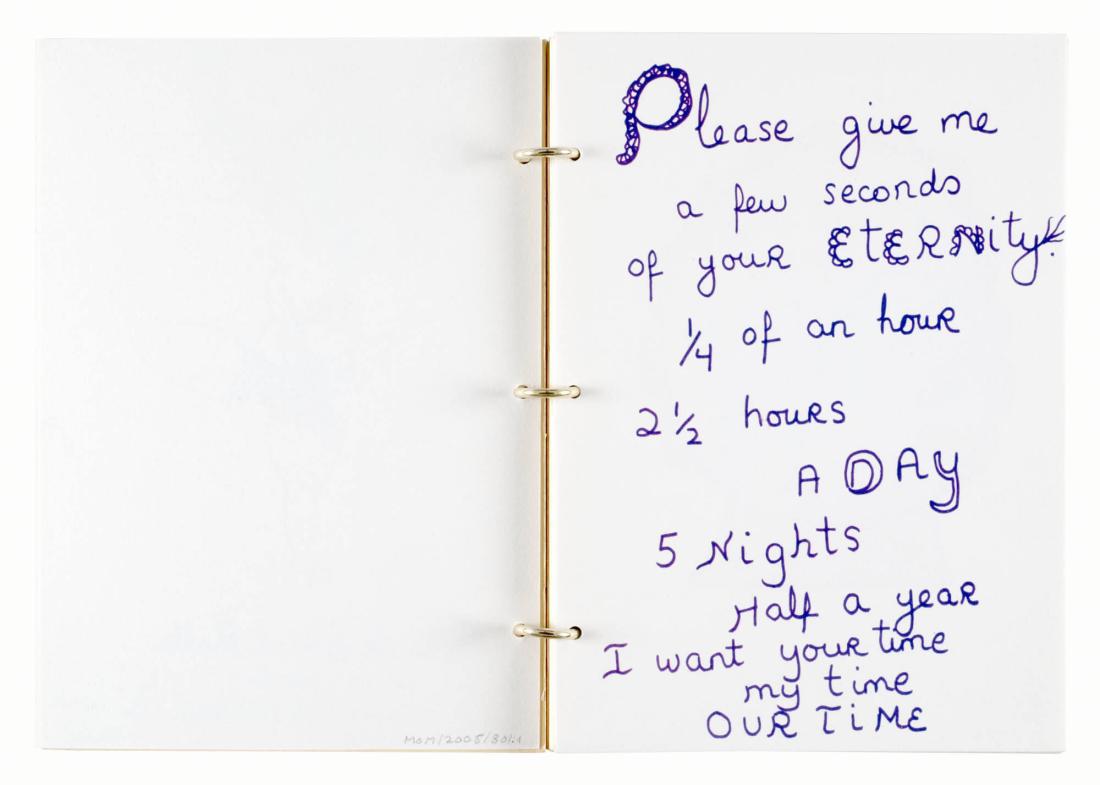 MoM/2005/80/1.1
Please give me
a few seconds
of your EtERNity!
1/4 of an houR
2 1/2 houRs
A DAy
5 Nights
Half a yeaR
I want youR time
my time
OUR TiME